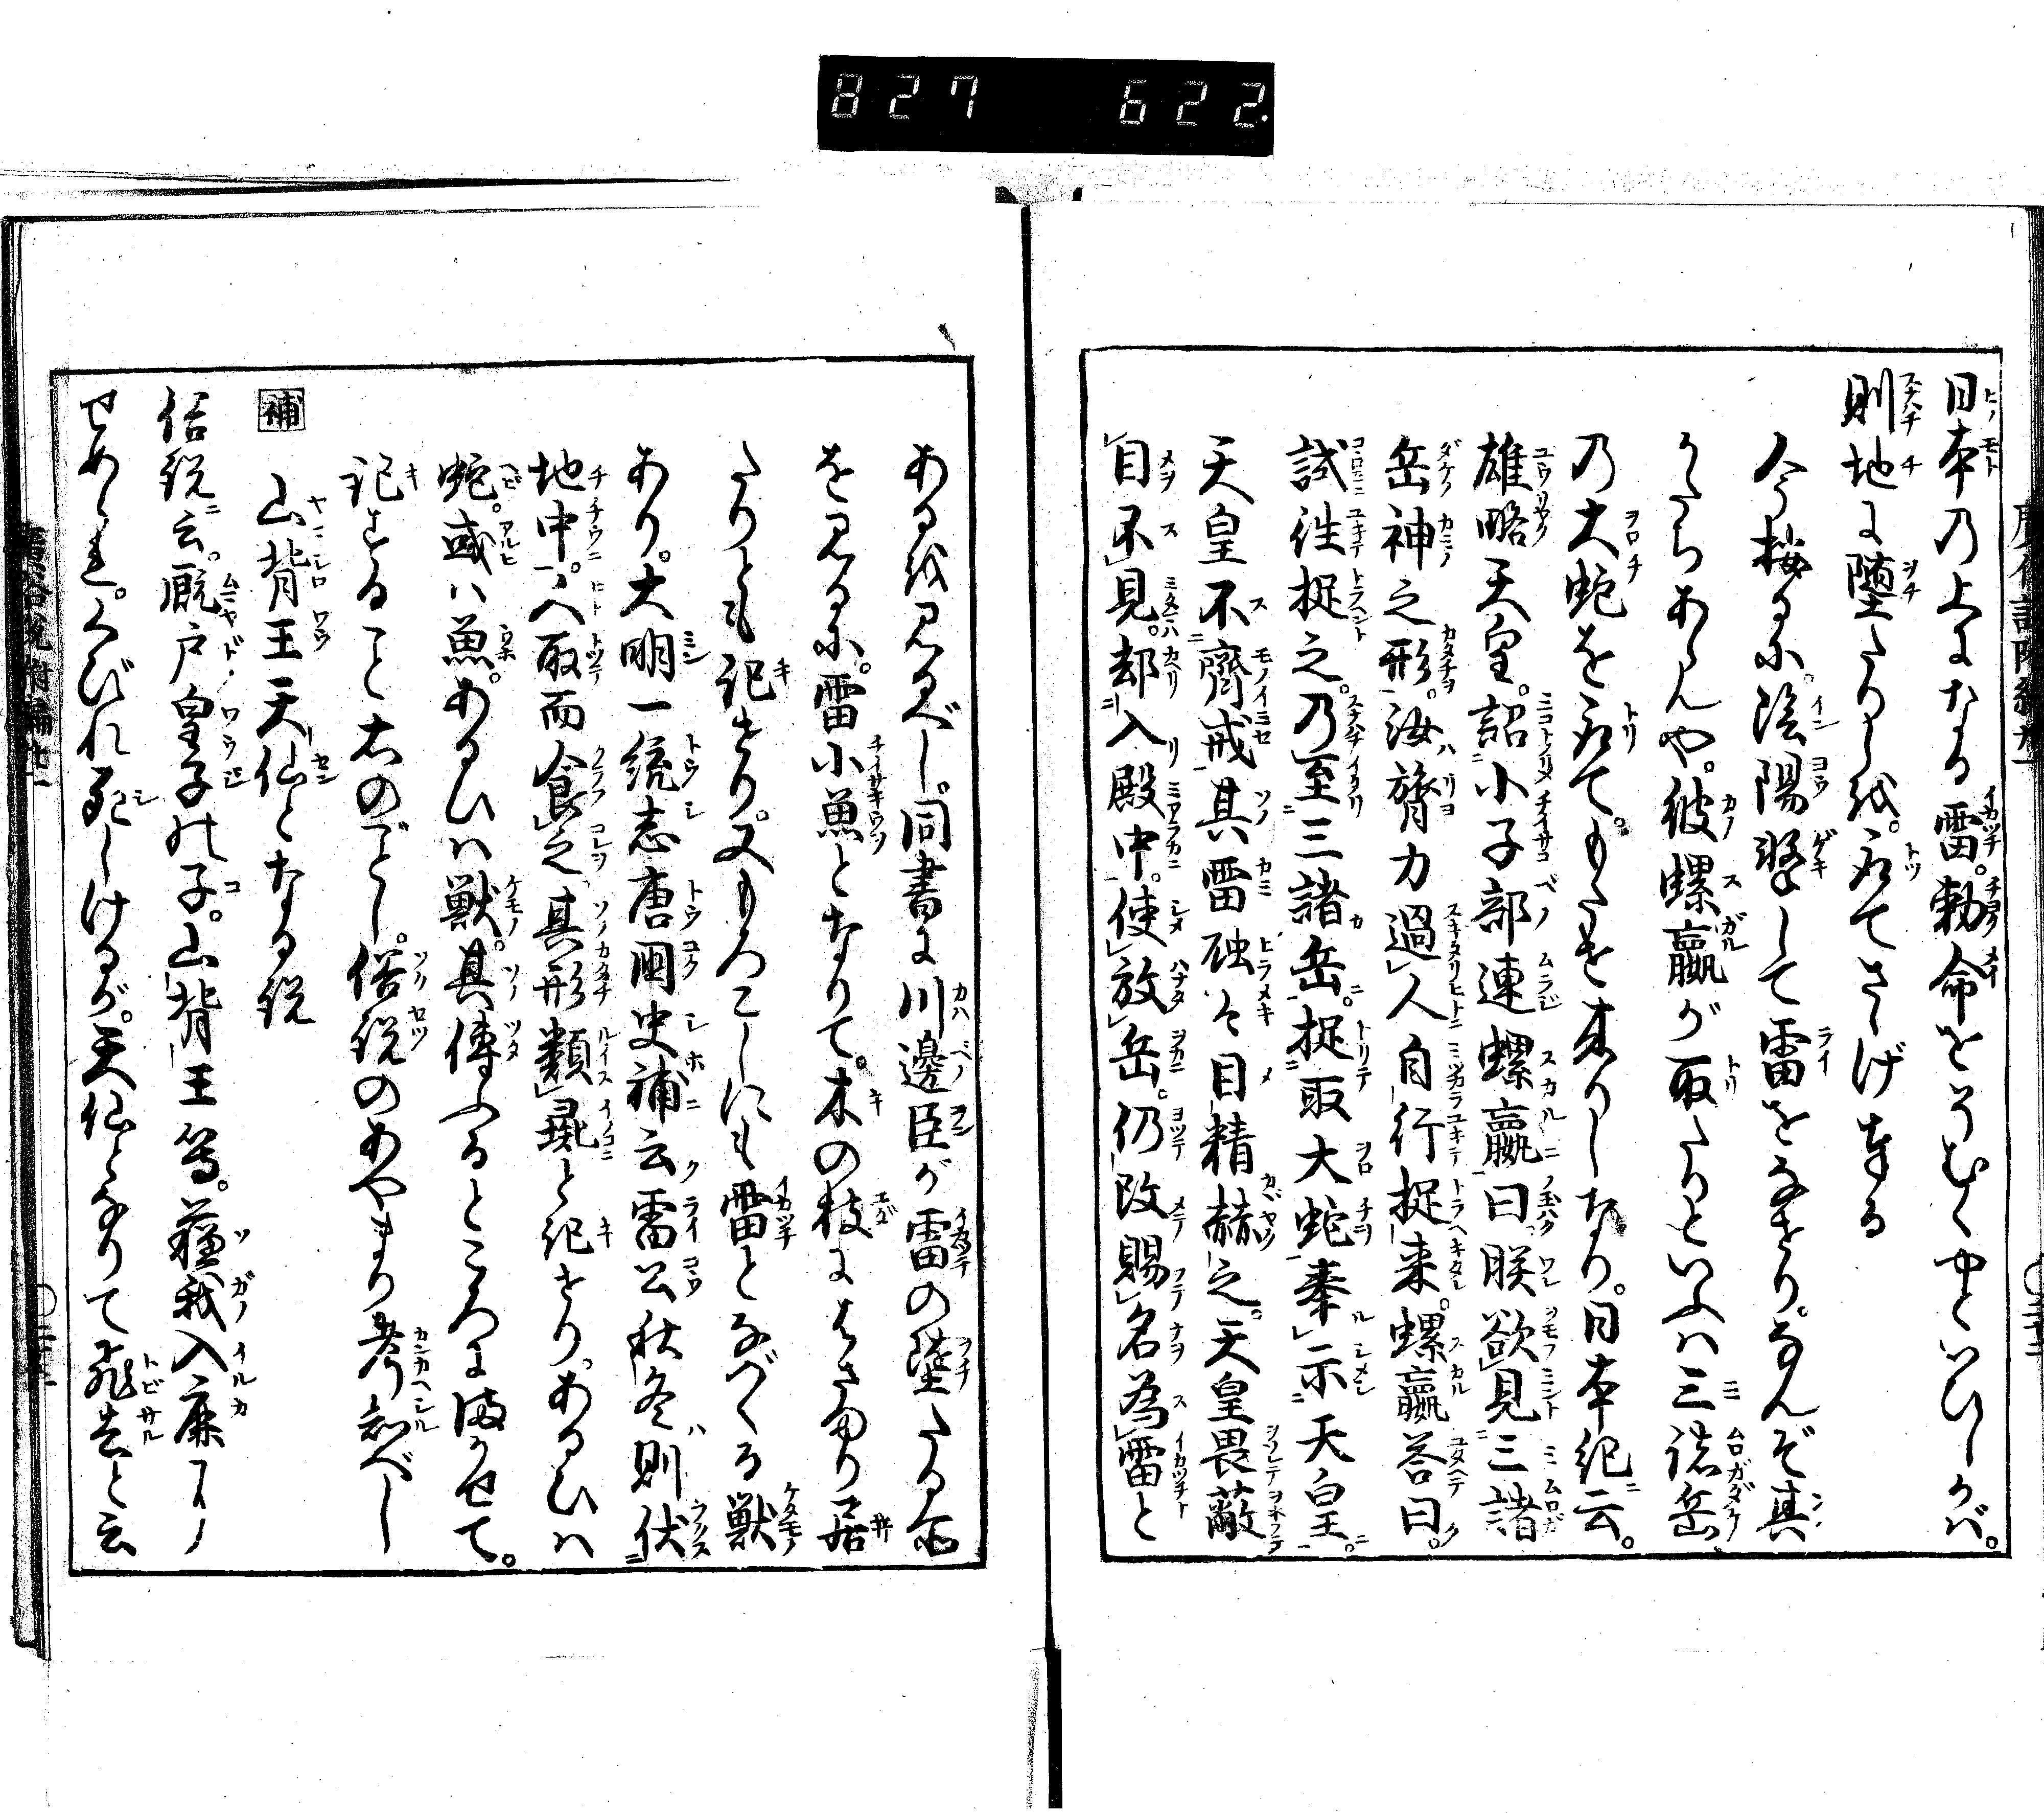 827 622.
日本の上になる雷。勅命をそむくやといひしかば。
則地に墮たりしを。取てさゝげ奉る
今按るに。陰陽撃して雷をなせり。なんぞ其
かたちあらんや。彼螺蠃が取たりといふハ三諸岳
の大蛇を取て。もたせ来りしなり。日本紀云。
雄略天皇。詔小子部連螺蠃曰朕欲見三諸
岳神之形。汝膂力過人自行捉来。螺蠃答曰。
試往捉之。乃至三諸岳。捉取大蛇奉示天皇。
天皇不齋戒其雷虺々目精赫之。天皇畏蔽
目不見。却入殿中。使放岳。仍改賜名為雷と
あるを見るべし。同書に川邊臣が雷の墮たる
を見るに。雷小魚となりて。木の枝にはさまり居
たりとも記せり。又もろこしにも雷となづくる獣
あり。大明一統志唐國史補云雷公秋冬則伏
地中。人取而食之其形類彘と紀せり。あるひハ
蛇。或ハ魚。あるひハ獣。其傳ふるところにまかせて。
記すること右のごとし。俗説のあやまり考知べし
補 山背王天仙となる説
俗説云。厩戸皇子の子。山背王等。蘇我入鹿に
せめられ。くびれ死しけるが。天仙となりて飛去と云